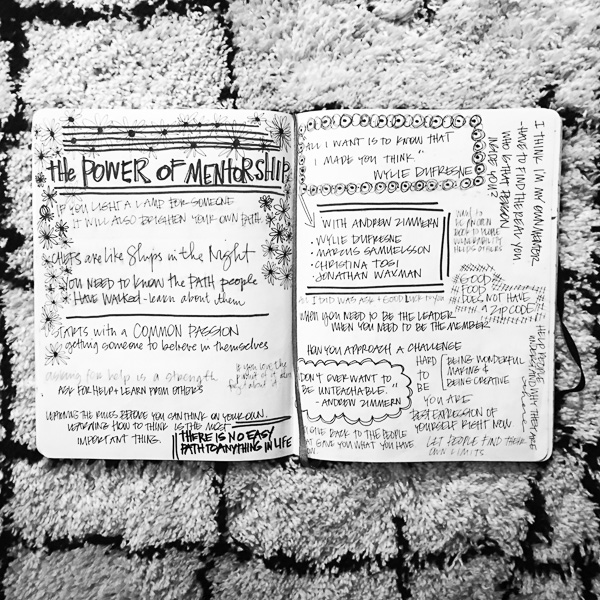 the POWER OF MENTORSHIP
IF YOU LIGHT A LAMP FOR SOMEONE
IT WILL ALSO BRIGHTEN YOUR OWN PATH.
CHEFS are like Ships in the Night
YOU NEED to KNOW the PATH people
HAVE WALKED - learn about them
STARTS with a COMMON PASSION
getting someone to believe in themselves
asking for help is a strength
ASK FOR HELP + LEARN FROM OTHERS
If you love the
LEARNING THE RULES BEFORE YOU CAN THINK ON YOUR OWN.
LEARNING HOW TO THINK IS THE MOST
IMPORTANT THING.
THERE IS NO EASY
PATH TO ANYTHING IN LIFE
ALL I WANT IS TO KNOW THAT
I MADE YOU THINK."
WYLIE DUFRESNE
WITH ANDREW ZIMMERN
• WYLIE DUFRESNE
• MARCUS SAMUELSSON
• CHRISTINA TOSI
• JONATHAN WAXMAN
I THINK I'M MY OWN MENTOR
- HAVE TO FIND THE REAL YOU
WHO IS THAT PERSON
INSIDE YOU?
VULNERABILITY
HELPS OTHERS
#GOOD
FOOD
DOES NOT HAVE
A ZIP CODE
ALL I DID WAS ASK + GOOD LUCK TO YOU
when you NEED TO BE THE LEADER
WHEN YOU NEED TO BE THE MEMBER
HOW YOU APPROACH A CHALLENGE
HARD
TO
BE
BEING WONDERFUL
MAKING &
BEING CREATIVE
DON'T EVER WANT TO
BE UNTEACHABLE."
- ANDREW ZIMMERN
YOU ARE
BEST EXPRESSION OF
YOURSELF RIGHT NOW
GIVE BACK TO THE PEOPLE
THAT GAVE YOU WHAT YOU HAVE
LET PEOPLE FIND THEIR
OWN LIMITS
HELP PEOPLE
UNDERSTAND WHY THEY ARE